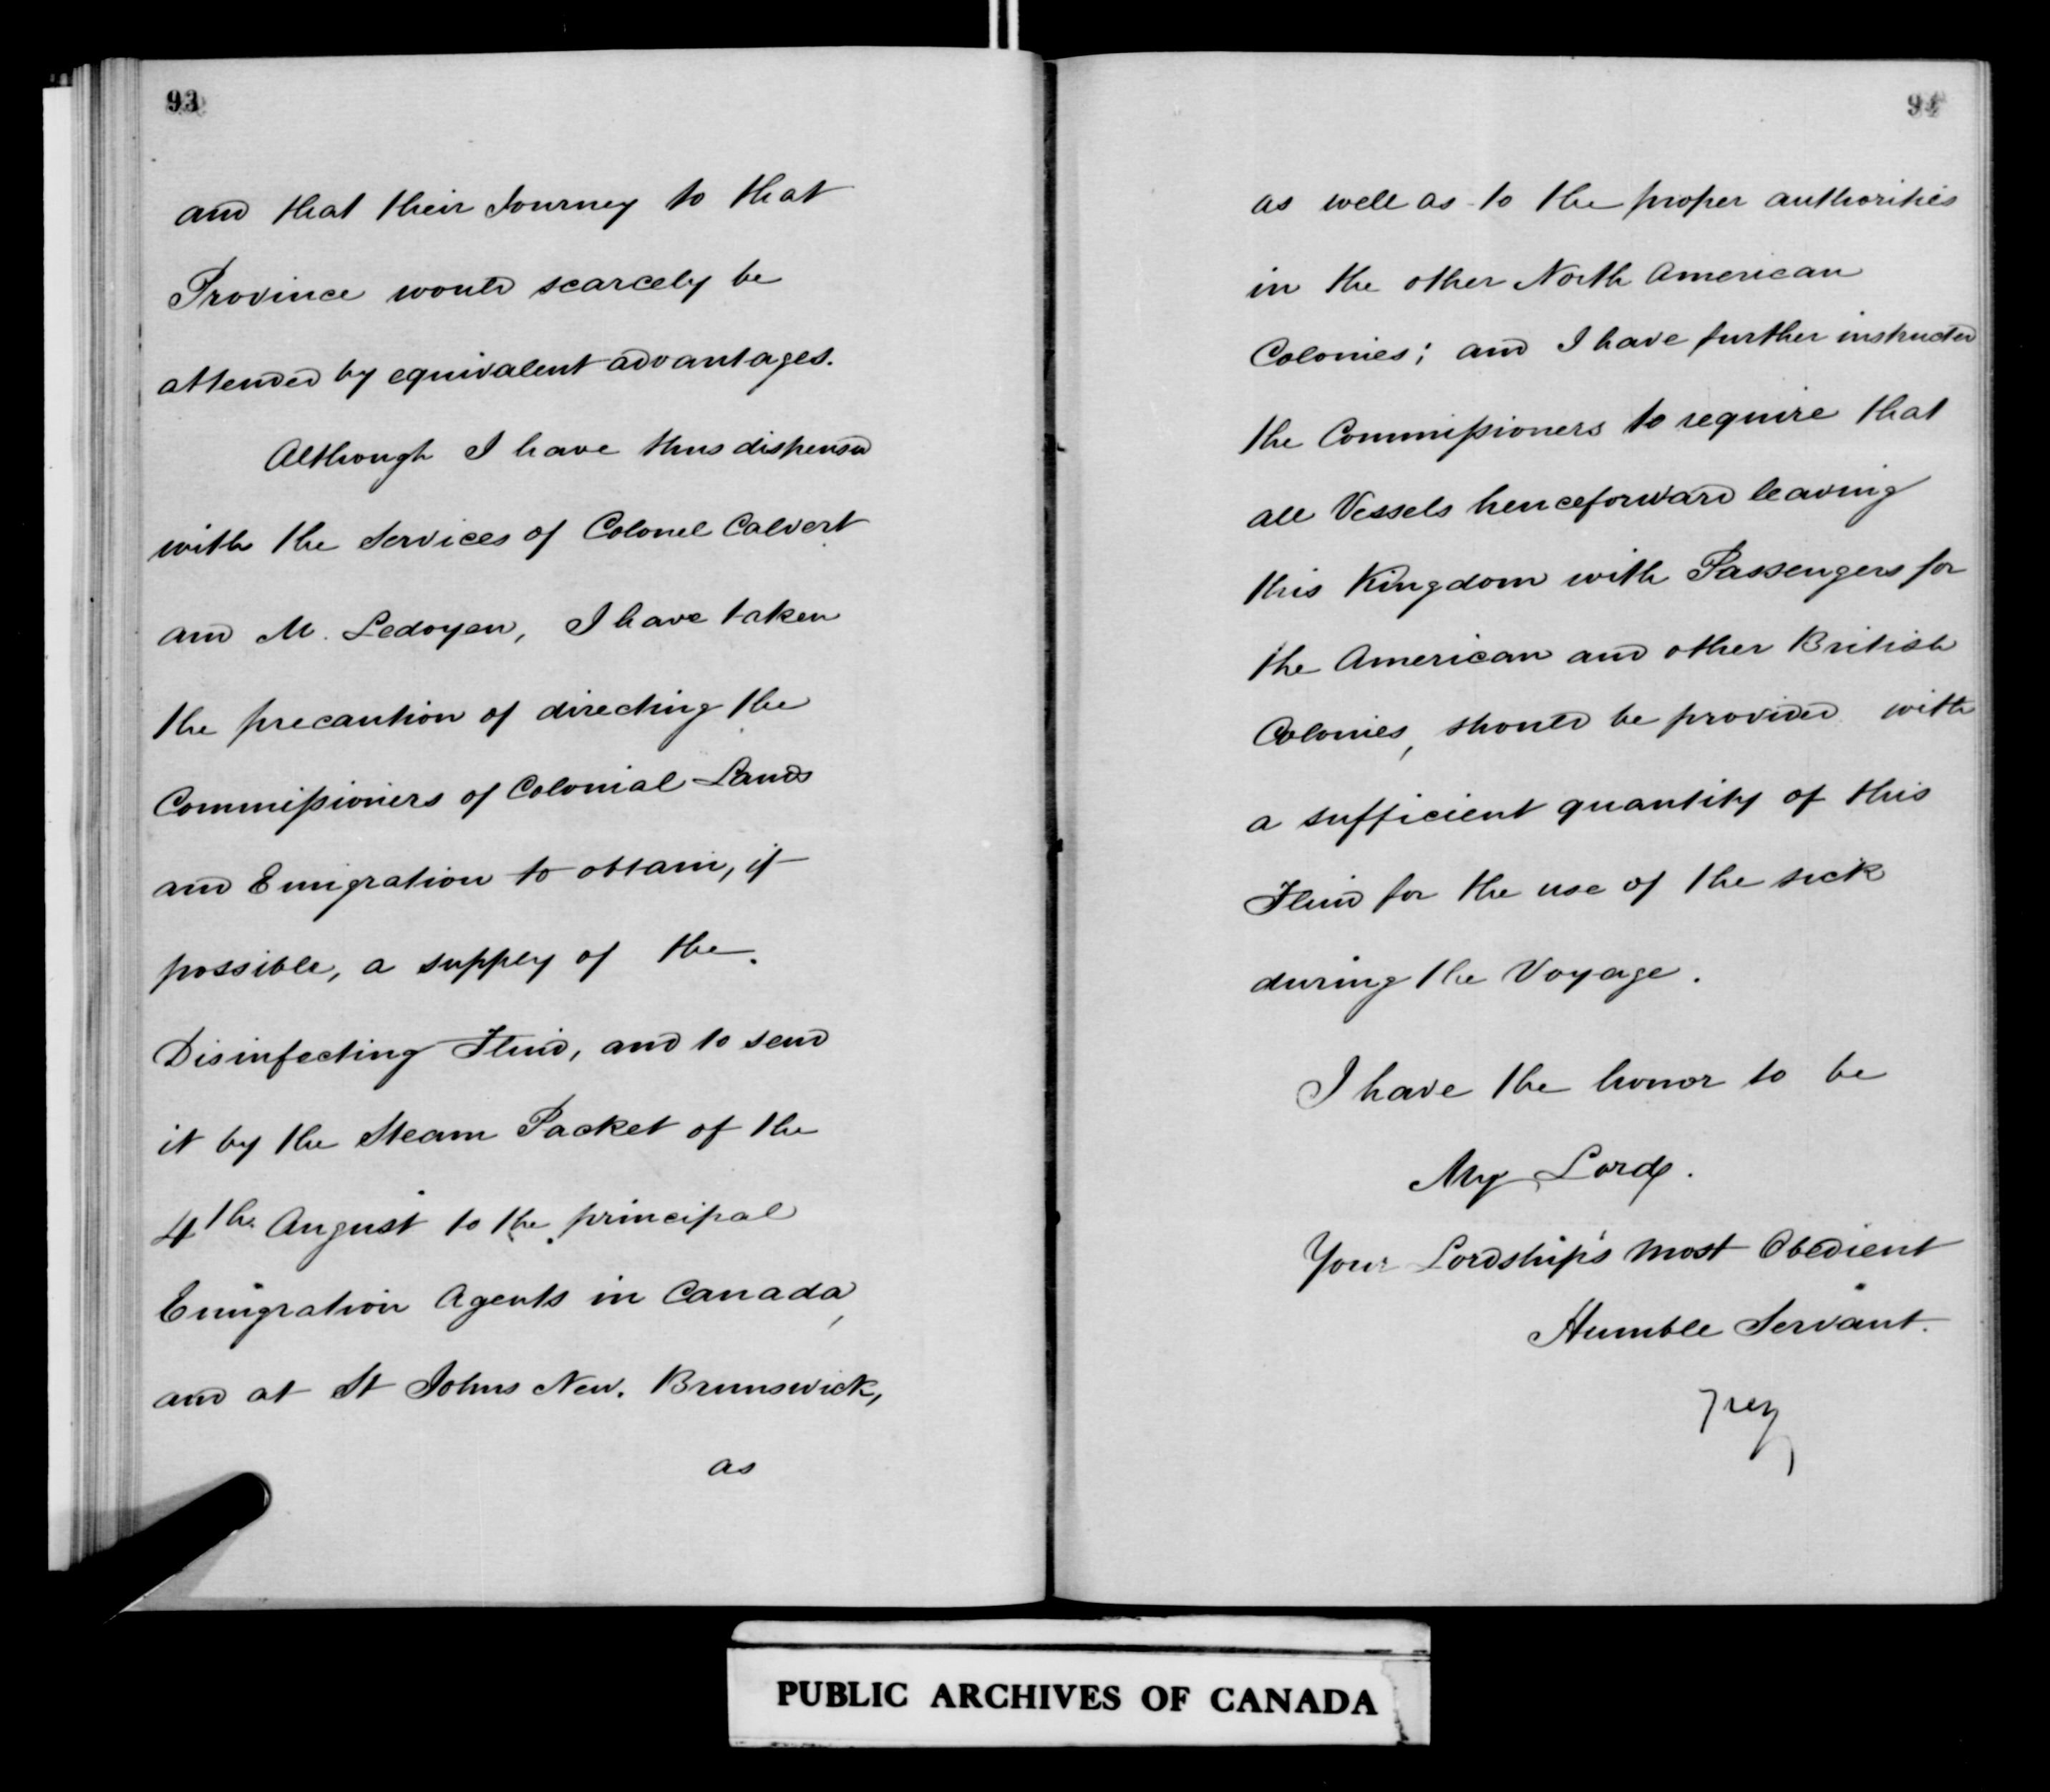 93
and that their Journey to that
Province would scarcely be
attended by equivalent advantages.
Although I have thus dispensed
with the Services of Colonel Calvert
and M. Ledoyen, I have taken
the precaution of directing the
Commissioners of Colonial Lands
and Emigration to obtain, if
possible, a supply of the
Disinfecting Fluid, and to send
it by the Steam Packet of the
4th August to the principal
Emigration Agents in Canada,
and at St Johns New. Brunswick,
as
94
as well as to the proper authorities
in the other North American
Colonies; and I have further instructed
the Commissioners to require that
all Vessels henceforward leaving
this Kingdom with Passengers for
the American and other British
Colonies, should be provided with
a sufficient quantity of this
Fluid for the use of the sick
during the Voyage.
I have the honor to be
My Lord.
Your Lordship's Most Obedient
Humble Servant.
Grey
PUBLIC ARCHIVES OF CANADA